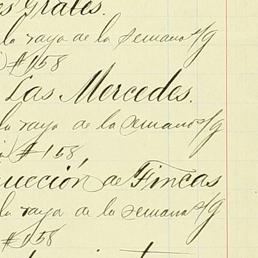 es Grales.
la raya de la semana s/g
$158
Las Mercedes.
la raya de la semana s/g
$158,
ucción de Fincas
la raya de la semana s/g
$158